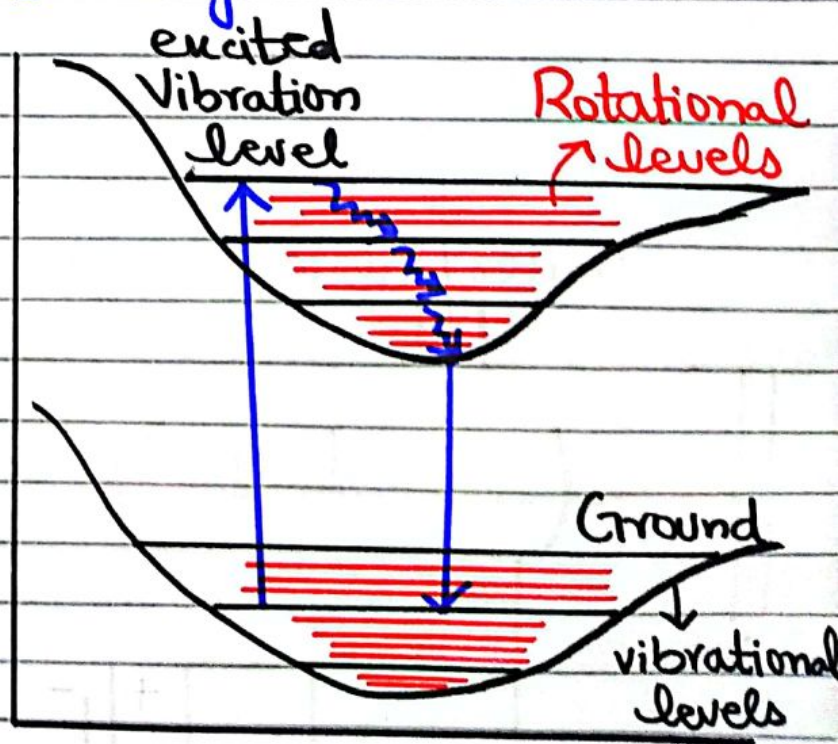 excited
Vibration
level
Rotational
levels
Ground
vibrational
levels